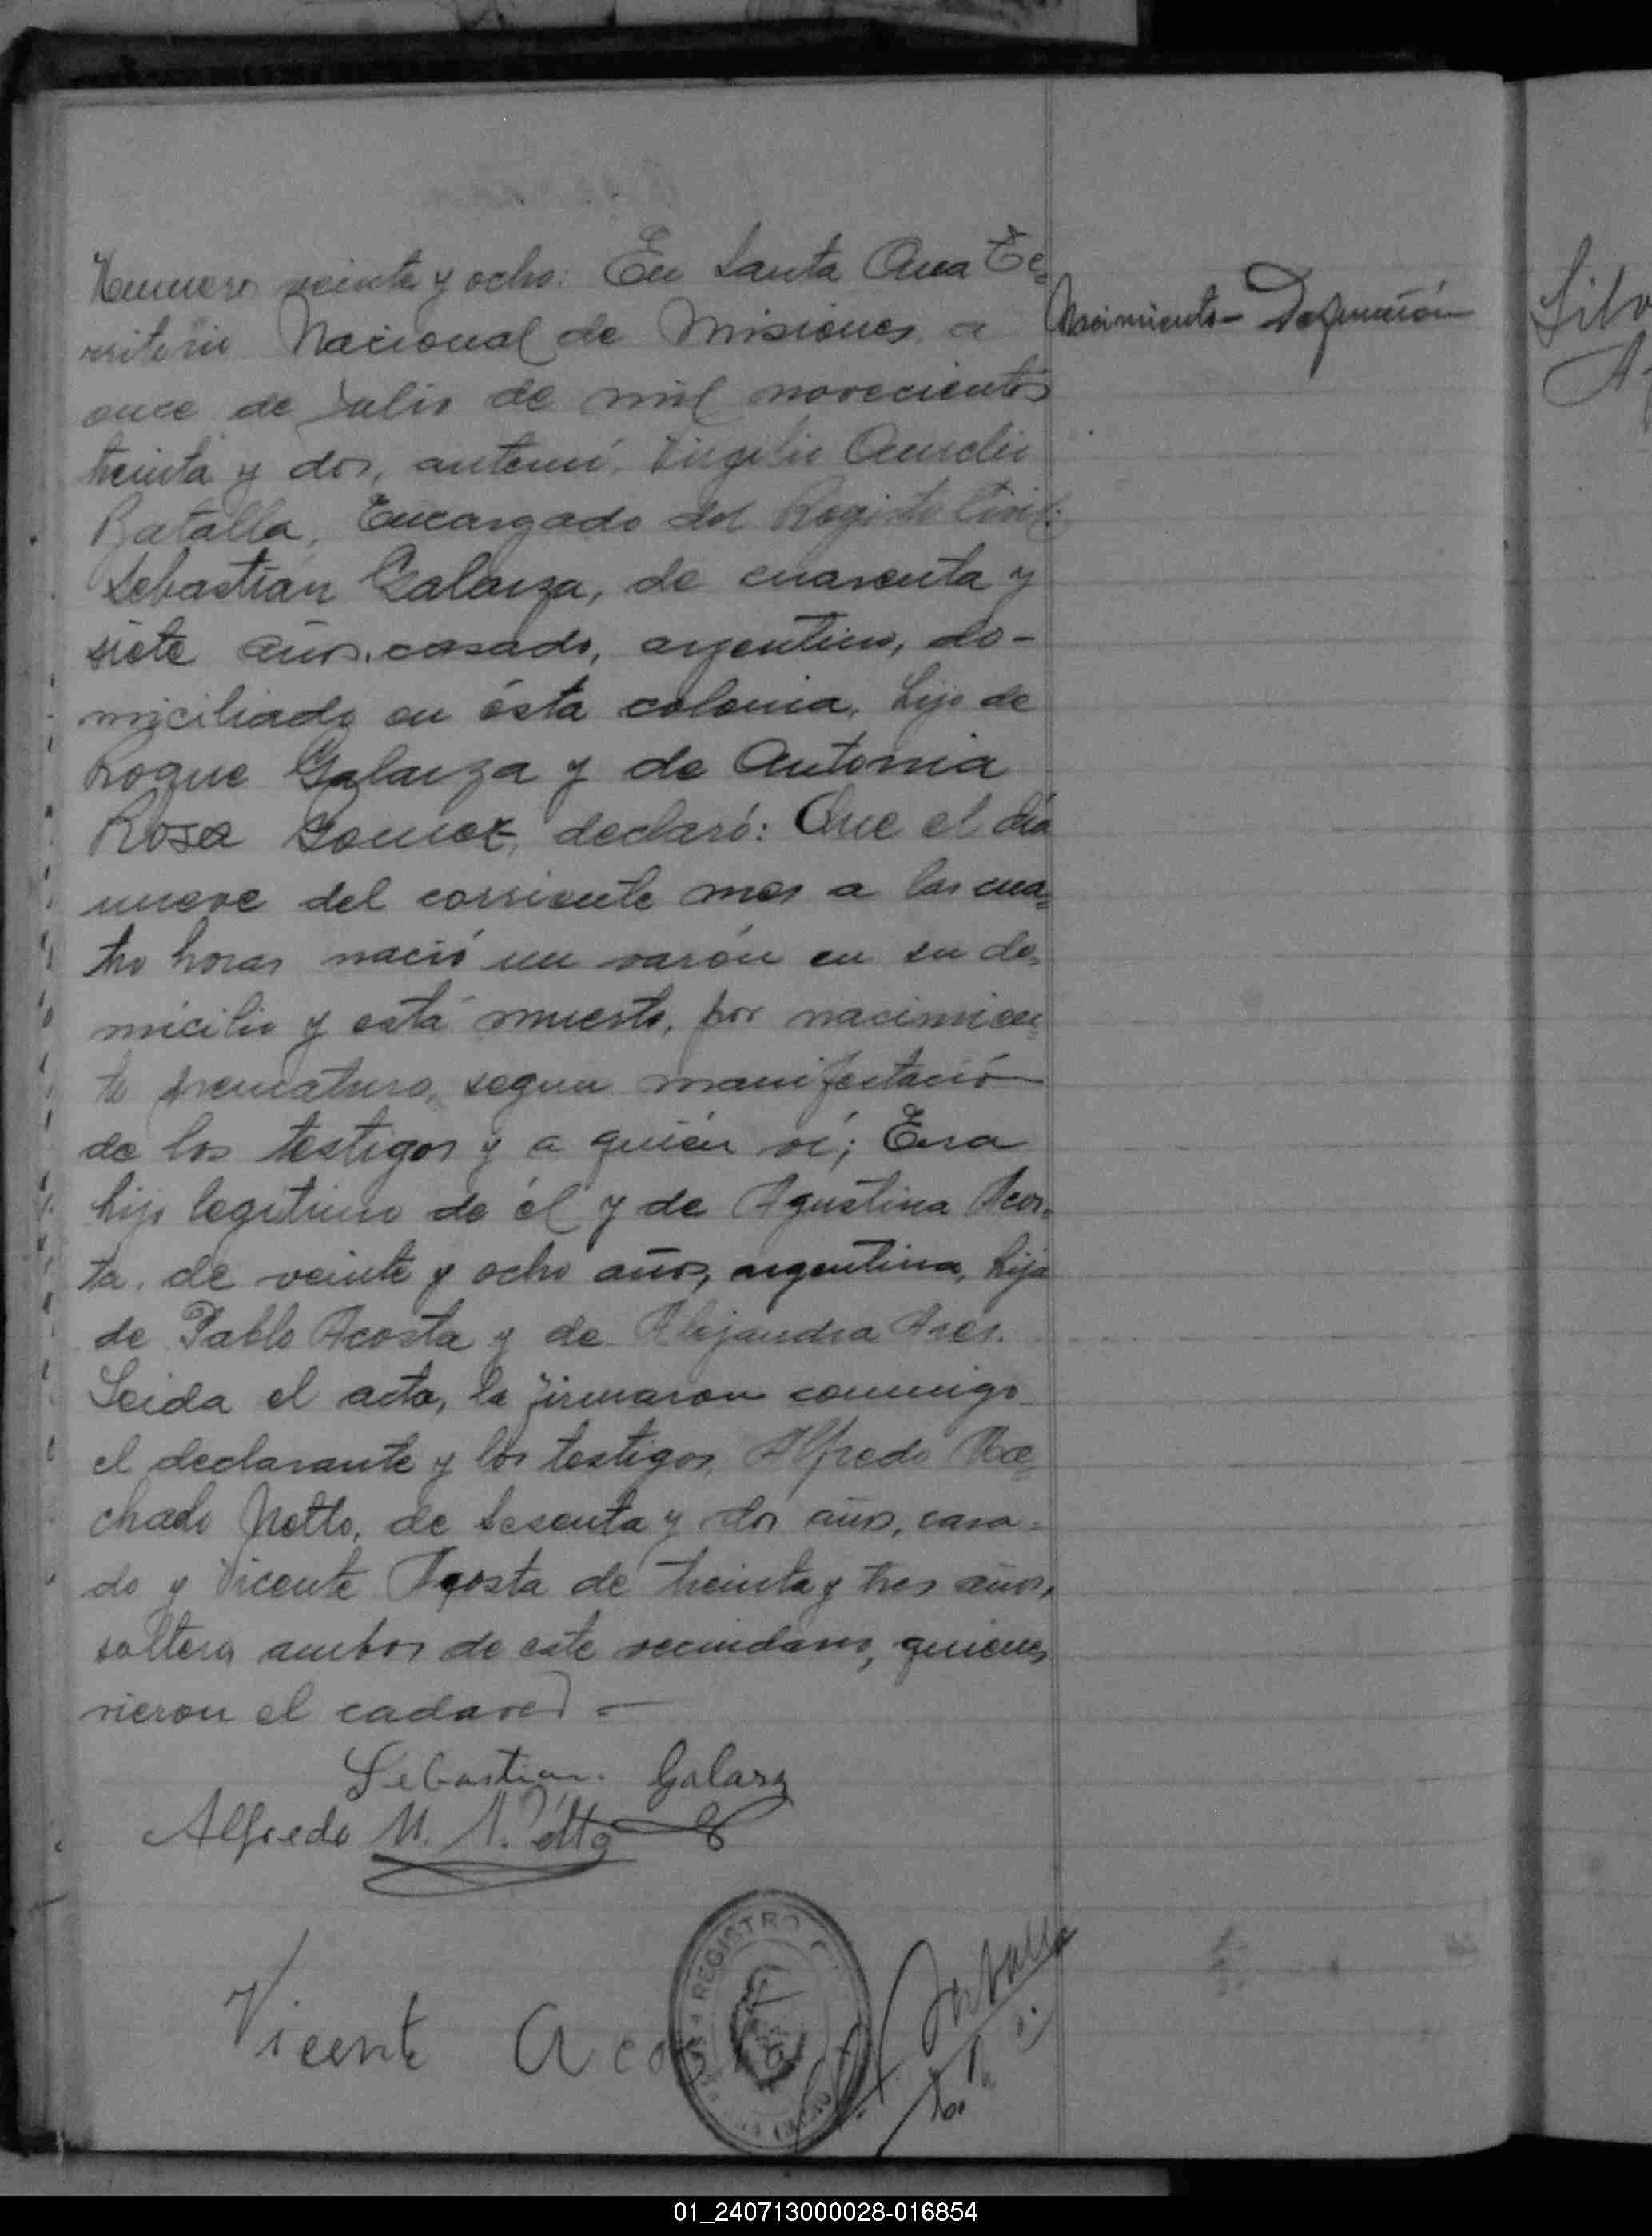 Numero veinte y ocho: En Santa Ana Te=
rritorio Nacional de Misiones, a
once de Julio de mil novecientos
treinta y dos, antemí, Virgilio Aurelio
Batalla, Encargado del Registro Civil:
Sebastián Galarza, de cuarenta y
siete años, casado, argentino, do-
miciliado en ésta colonia, hijo de
Roque Galarza y de Antonia
Rosa Gomez, declaró: Que el día
nueve del corriente mes a las cua=
tro horas nació un varón en su do=
micilio y está muerto, por nacimien=
to prematuro, segun manifestació
de los testigos y a quién ví; Era
hijo legitimo de él y de Agustina Acos=
ta, de veinte y ocho años, argentina, hija
de Pablo Acosta y de Alejandra
Leida el acta, la firmaron conmigo
el declarante y los testigos, Alfredo
chado Netto, de sesenta y dos años, casa=
do y Vicente Acosta de treinta y tres años,
soltero, ambos de este vecindario, quienes
vieron el cadaver. -
Nacimiento - Defunción
Sebastian. Galarz
Alfredo M. Netto
Vicente Aco
REGISTRO
Batalla
01_240713000028-016854